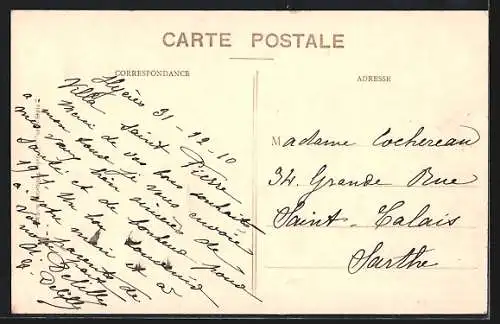 CARTE POSTALE
CORRESPONDANCE
ADRESSE
Hyères 31-12-10
Villa Saint Pierre
Merci de vos bons souhaits
à mon tour je vous envoie
mes vœux bien sincères de
santé et de bonheur pour
1911.
à votre mari et à
vos parents
Madame Cochereau
34 Grande Rue
Saint-Calais
Sarthe